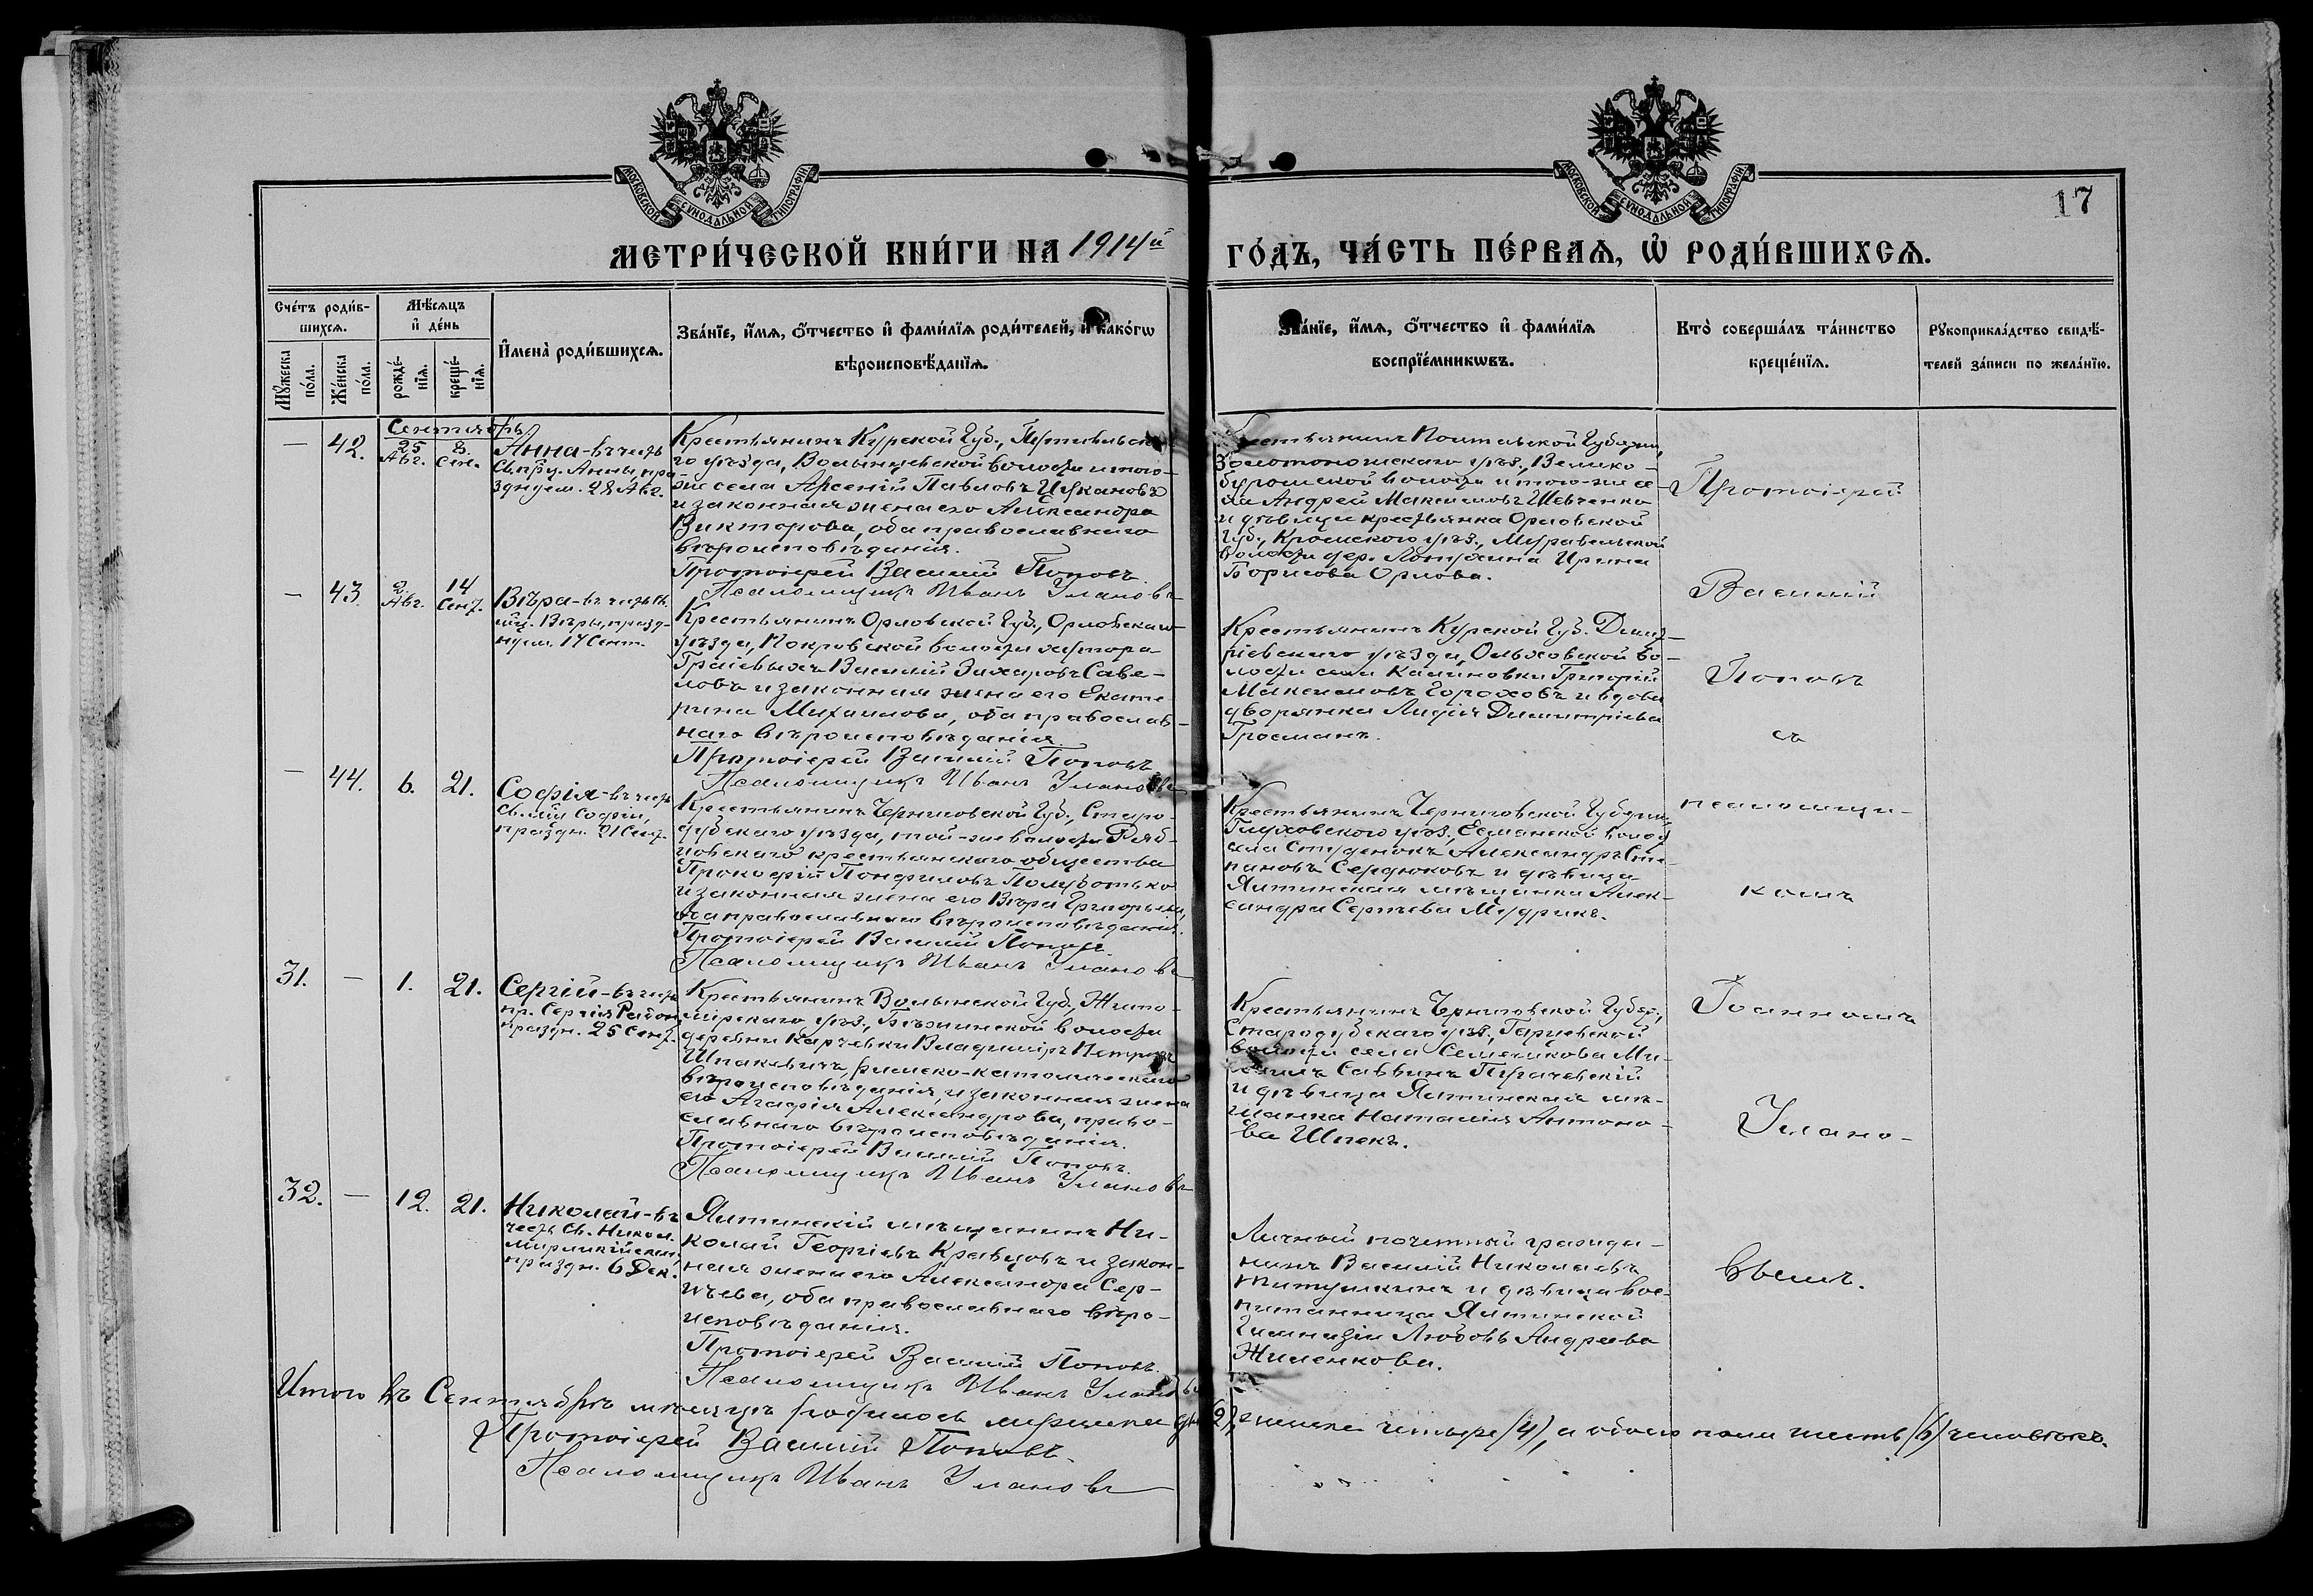 МОСКОВСКОЙ СУНОДАЛЬНОЙ ТИПОГРАФІИ
МОСКОВСКОЙ СУНОДАЛЬНОЙ ТИПОГРАФІИ
17
МЕТРИ́ЧЕСКОЙ КНИ́ГИ НА 1914й
ГО́ДЪ, ЧА́СТЬ ПЕ́РВАѦ, Ѡ҆ РОДИ́ВШИХСѦ.
Сче́тъ роди́в-
шихсѧ.
Мѣ́сѧцъ
и҆ де́нь
Мꙋ́жеска
по́ла.
Же́нска
по́ла.
рожде́-
нїѧ.
креще́-
нїѧ.
И҆мена̀ роди́вшихсѧ.
Зва́нїе, и҆́мѧ, ѻ҆́тчество и҆ фами́лїѧ роди́телей, и҆ како́гѡ
вѣроисповѣ́данїѧ.
Зва́нїе, и҆́мѧ, ѻ҆́тчество и҆ фами́лїѧ
воспрїе́мникѡвъ.
Кто̀ соверша́лъ та́инство
креще́нїѧ.
Рꙋкоприкла́дство свидѣ́-
телей за́писи по жела́нїю.
Сентябрь
— 42. 25 Авг. 8. Сент.
Анна - въ честь
Св. пр. Анны, пра
зднуем. 28 Авг.
Крестьянинъ Курской Губ., Путивльска
го уѣзда, Волынцевской волости и того-
же села Арсеній Павловъ Цукановъ
и законная жена его Александра
Викторова, оба православнаго
вѣроисповѣданія.
Протоіерей Василій Поповъ.
Псаломщикъ Иванъ Улановъ
Крестьянинъ Полтавской Губерніи,
Золотоношскаго уѣз., Велико-
буромской волости и того-же се-
ла Андрей Максимовъ Шевченко
и дѣвица крестьянка Орловской
Губ., Кромскаго уѣз., Муравльской
волости дер. Лопухина Ирина
Борисова Орлова.
— 43. 2. Авг. 14 Сент.
Вѣра - въ честь св.
мц. Вѣры, празд-
нуем. 17 Сент.
Крестьянинъ Орловской Губ., Орловскаго
уѣзда, Покровской волости хутора
Василій Захаровъ Саве-
ловъ и законная жена его Екате
рина Михаилова, оба православ-
наго вѣроисповѣданія.
Протоіерей Василій Поповъ
Псаломщикъ Иванъ Улановъ
Крестьянинъ Курской Губ. Дмит-
ріевскаго уѣзда, Ольховской во-
лости села Калиновки Григорій
Максимовъ Гороховъ и вдова
дворянка Лидія Димитріева
Гросманъ.
— 44. 6. 21.
Софія - въ честь
Св. мц. Софіи,
праздн. 21 Сент.
Крестьянинъ Черниговской Губ., Старо-
дубскаго уѣзда, той-же волости
крестьянскаго общества
Прокофій Панфиловъ Полуботько
и законная жена его Вѣра Григорьева,
оба православнаго вѣроисповѣданія.
Протоіерей Василій Поповъ
Псаломщикъ Иванъ Улановъ
Крестьянинъ Черниговской Губерніи,
Глуховскаго уѣз., Есманской волос.
села Студенокъ, Александръ Сте-
пановъ Сердюковъ и дѣвица
Ялтинская мѣщанка Алек-
сандра Сергѣева Мудрикъ.
31. — 1. 21.
Сергій - въ честь
пр. Сергія Радон.
праздн. 25 Сент.
Крестьянинъ Волынской Губ., Жито-
мірскаго уѣз., волости
деревни Карчевки Владиміръ Петровъ
Шпакевичъ, римско-католическаго
вѣроисповѣданія, и законная жена
его Агафія Александрова, право-
славнаго вѣроисповѣданія.
Протоіерей Василій Поповъ.
Псаломщикъ Иванъ Улановъ
Крестьянинъ Черниговской Губер.,
Стародубскаго уѣз.,
волости села Семешкова Ми-
хаилъ Саввинъ
и дѣвица Ялтинская мѣ-
щанка Наталія Антоно-
ва Шпекъ.
32. — 12. 21.
Николай - въ
честь Св. Никол.
Мирликійскаго,
праздн. 6 Дек.
Ялтинскій мѣщанинъ Ни-
колай Георгіевъ Кравцовъ и закон-
ная жена его Александра Сер-
гѣева, оба православнаго вѣро-
исповѣданія.
Протоіерей Василій Поповъ.
Псаломщикъ Иванъ Улановъ
Личный почетный гражда-
нинъ Василій Николаевъ
Титушкинъ и дѣвица вос-
питанница Ялтинской
Гимназіи Любовь Андреева
Жиленкова.
Протоіерей
Василій
Поповъ
съ
псаломщи-
комъ
Іоанномъ
Улано-
вымъ.
Итого въ Сентябрѣ мѣсяцѣ родилось мужска два (2), женска четыре (4), а обоего пола шесть (6) человѣкъ.
Протоіерей Василій Поповъ.
Псаломщикъ Иванъ Улановъ